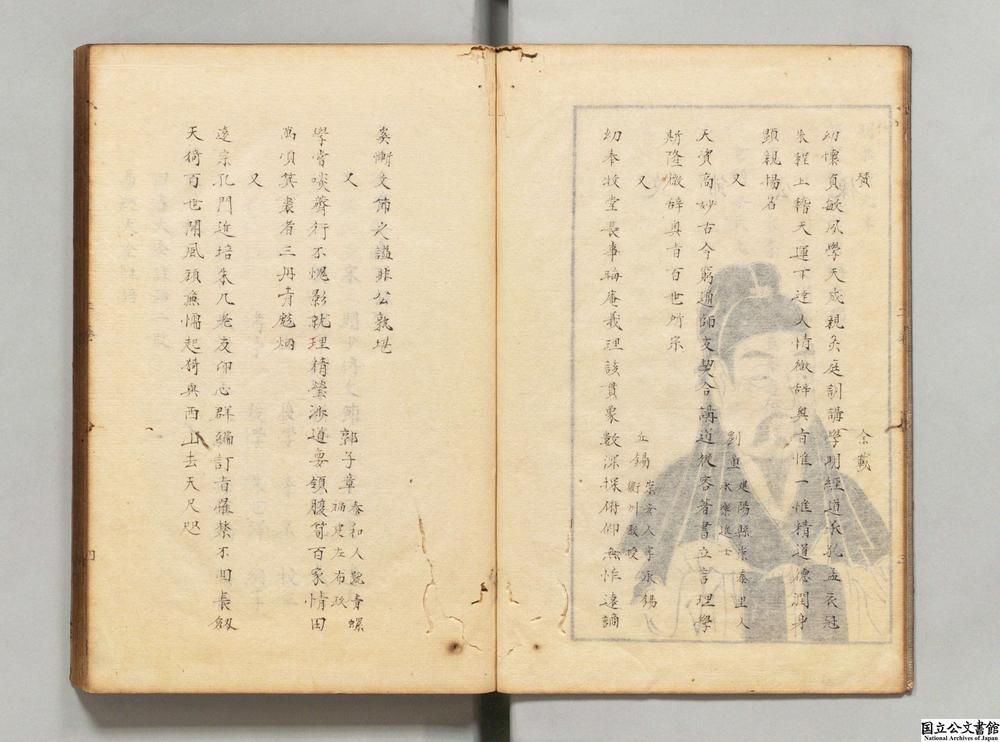 贊 余載
幼懷貞敏夙學天成親炙庭訓講學明經道承孔孟衣冠
朱程上稽天運下達人情微辭奥旨惟一惟精道德潤身
顯親揚名
又 劉 建陽縣崇泰里人
永樂進士
天資高妙古今窮通師友契合講道從容著書立言理學
斯隆微辭奥旨百世所宗
又 丘錫 崇安人字永錫
衢州教授
幼奉牧堂長事晦庵義理該貫象數深探俯仰無怍遠謫
奚慚文節之謚非公孰堪
又 郭子章 泰和人號青螺
福建左布政
學嘗啖薺行不愧影就理精瑩涉道要領腹笥百家情田
萬頃箕裘者三丹青彪炳
又
遠宗孔門近培朱几老友印心群編訂旨罹禁不回長劔
天猗百世聞風頑廉懦起猗與西山去天尺咫
国立公文書館
National Archives of Japan